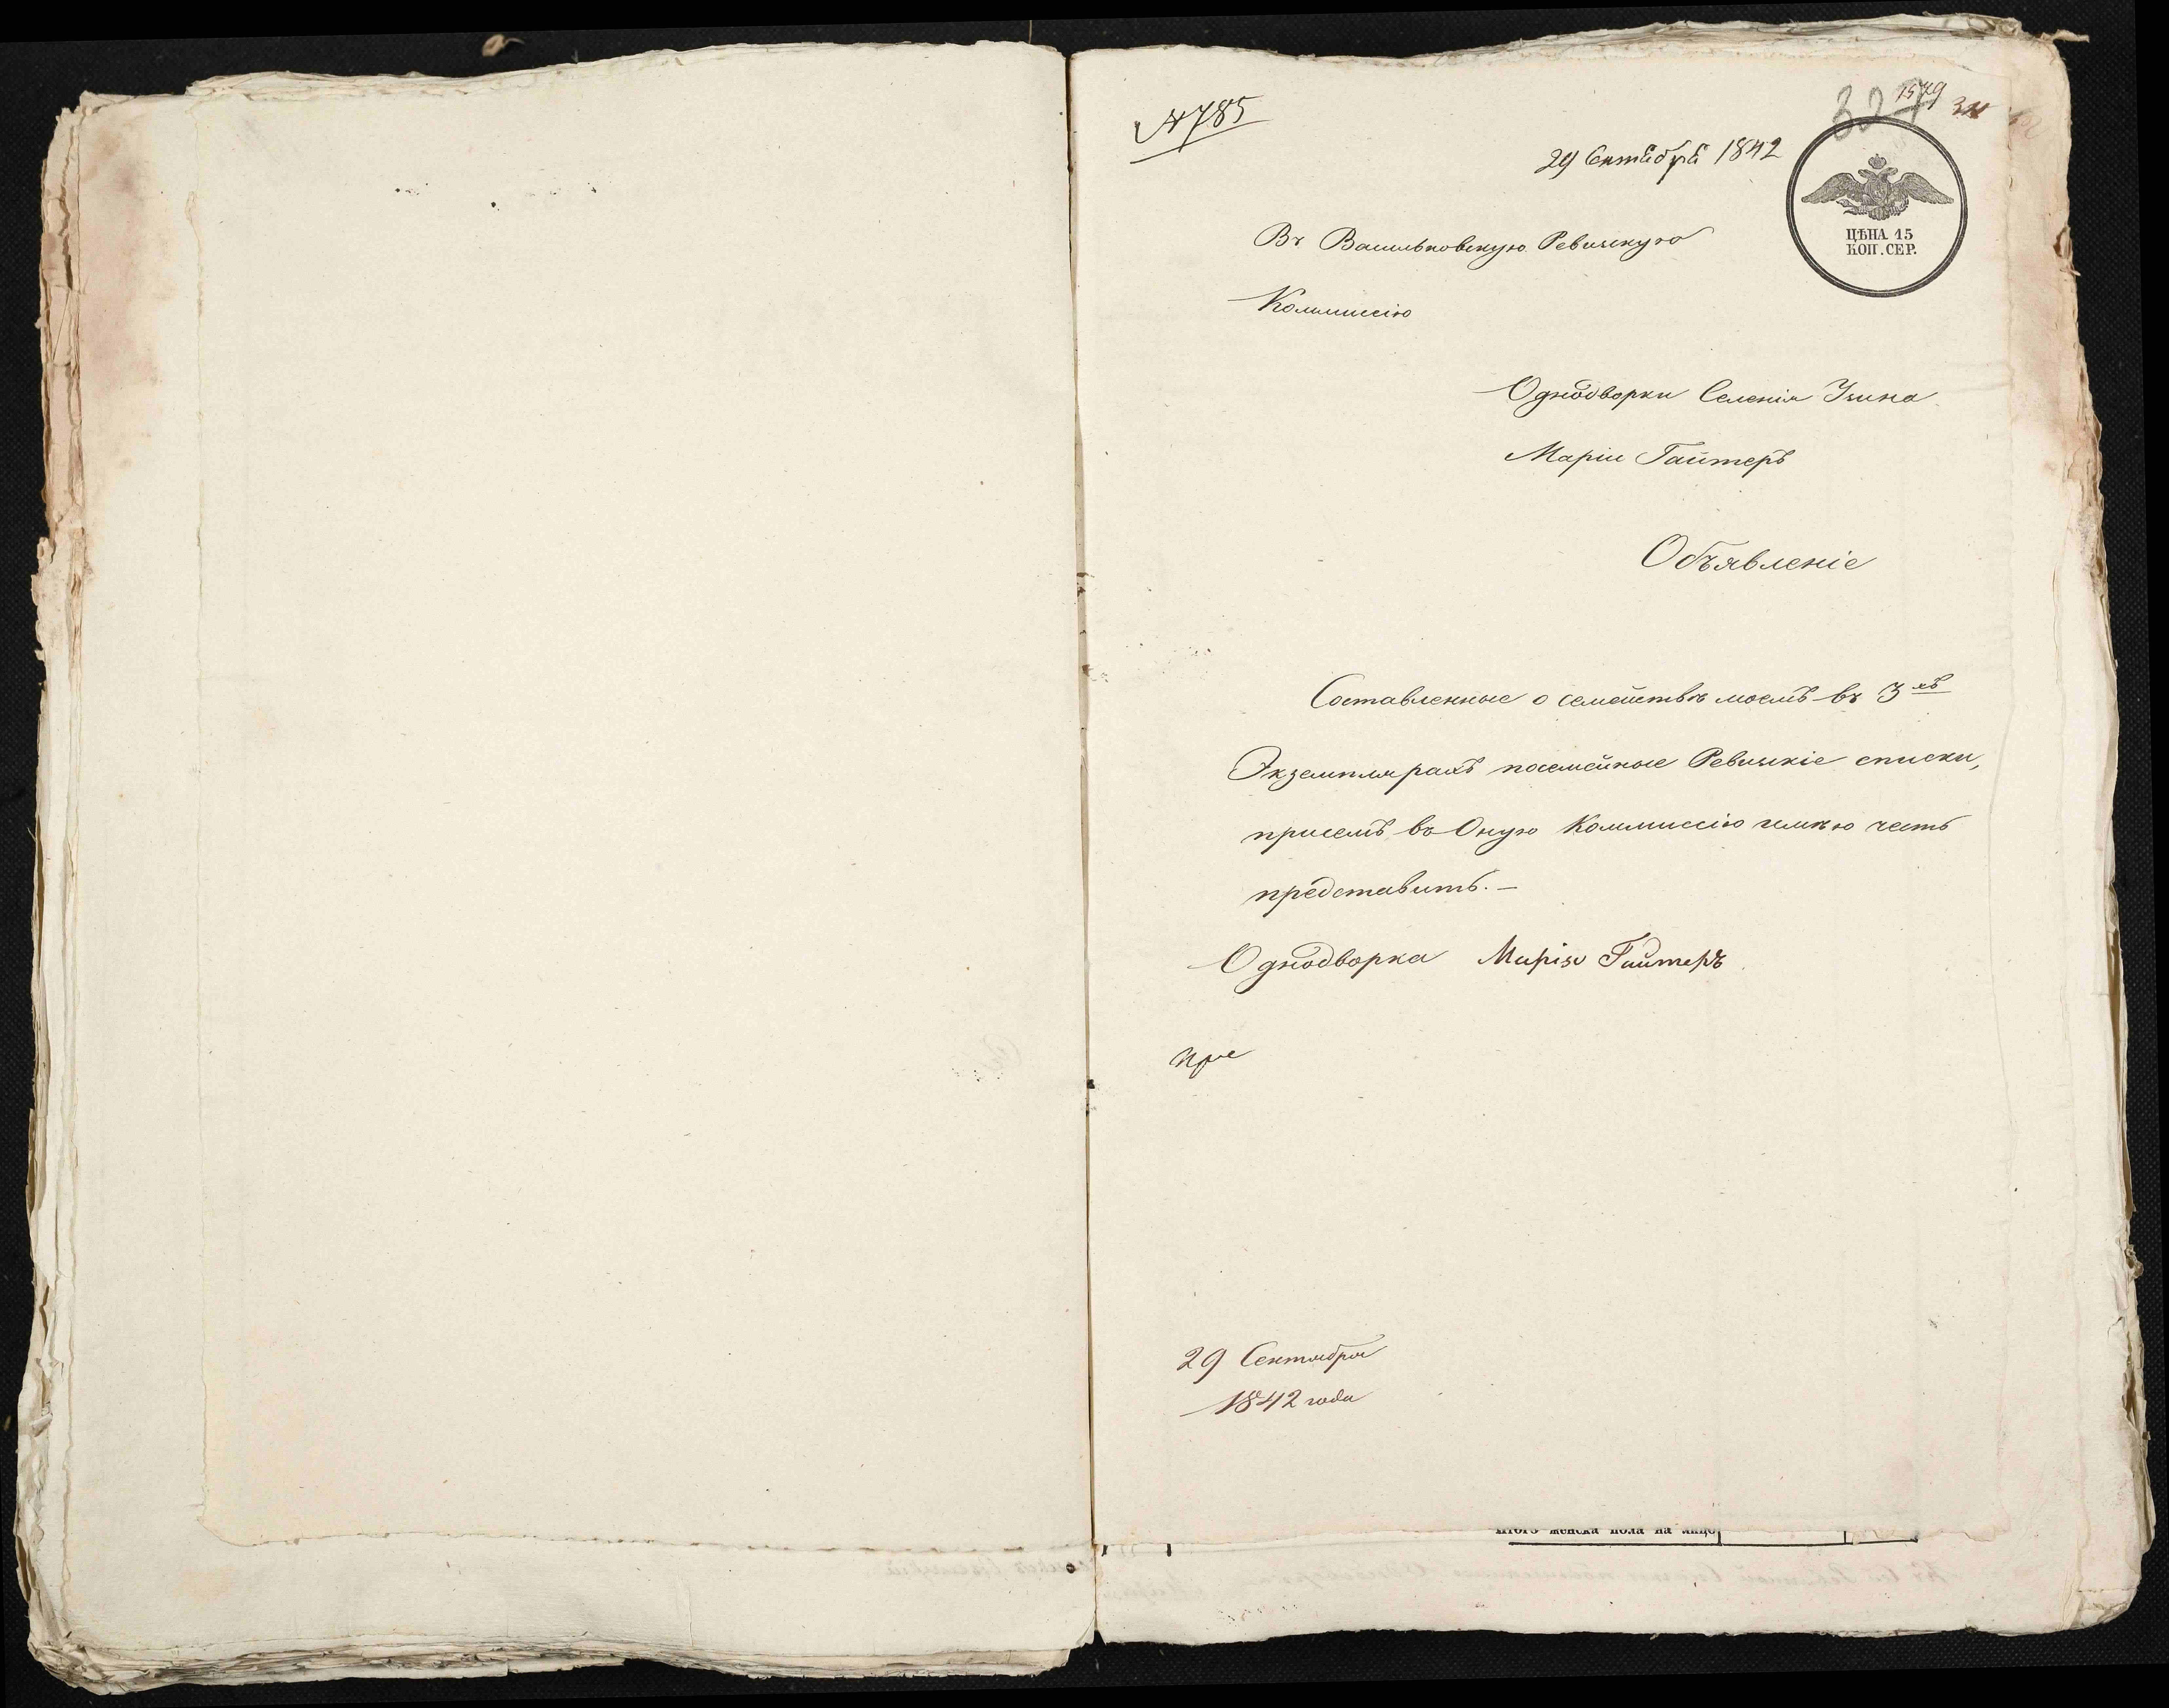 №785
1579
327
29 Сентября 1842
ЦѢНА 15
КОП. СЕР.
Въ Васильковскую Ревизскую
Коммисію
Однодворки Селенія Узина
Маріи Гайтеръ
Объявленіе
Составленные о семействѣ моемъ въ 3хъ
Экземплярахъ посемейные Ревизкіе списки,
присемъ въ Оную Коммиссію имѣю честь
представить.—
Однодворка Марія Гайтеръ
29 Сентября
1842 года
Итого женска пола на лицо